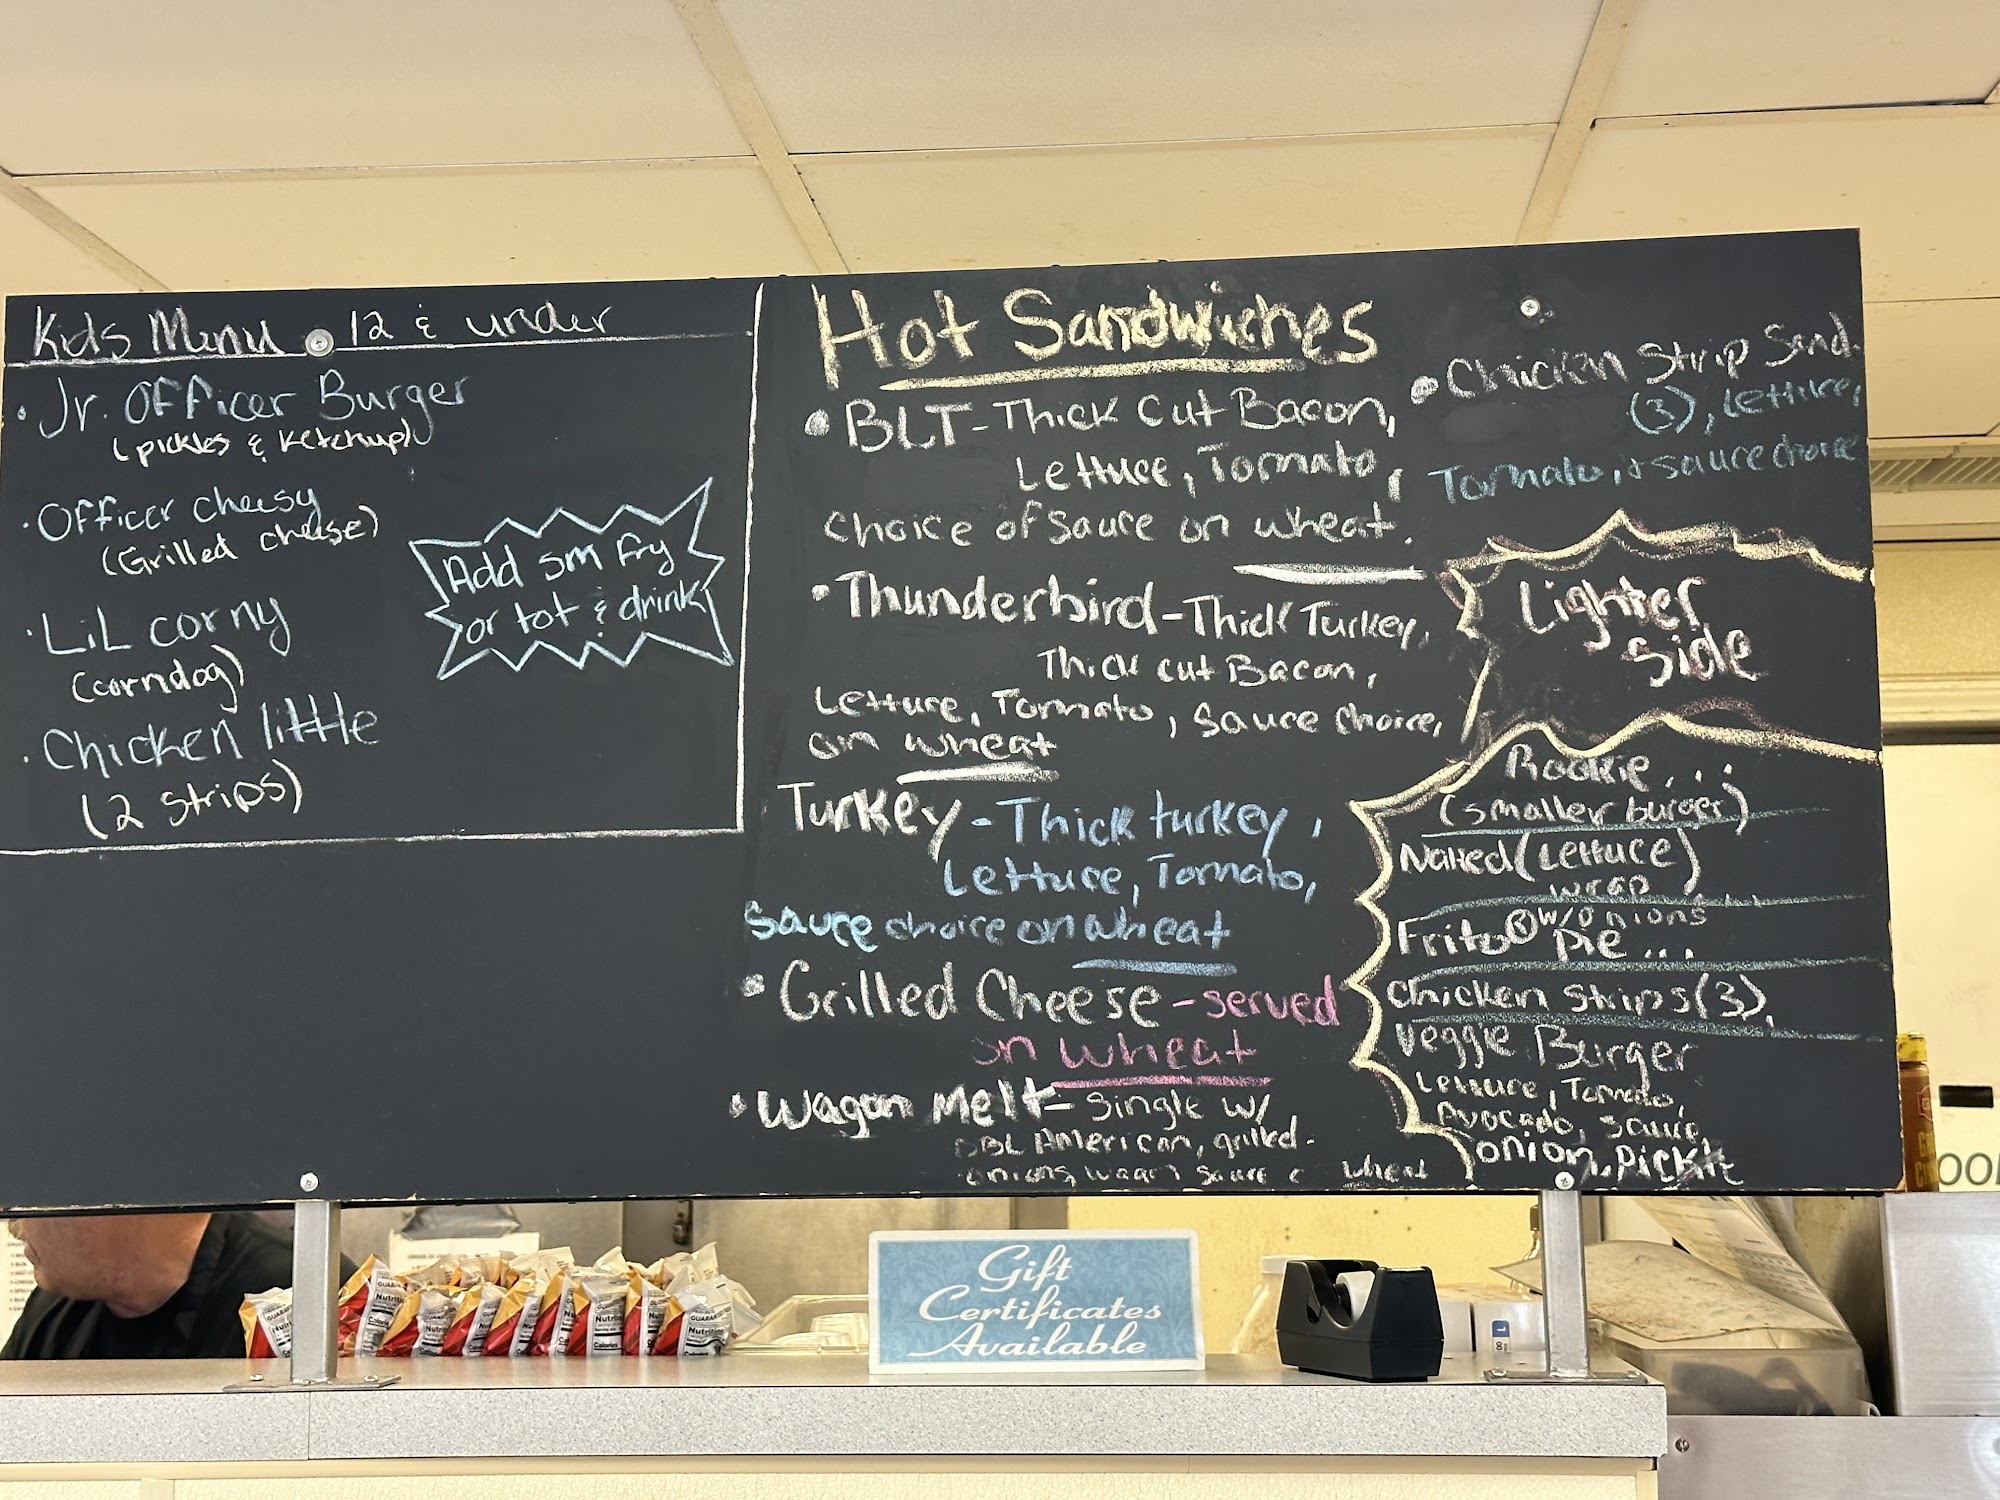 Kids Menu 12 & under
· Jr. Officer Burger
(pickles & ketchup)
· Officer cheesy
(Grilled cheese)
· LiL corny
(corndog)
· Chicken little
(2 strips)
Add sm fry
or tot & drink
Hot Sandwiches
• BLT - Thick Cut Bacon,
Lettuce, Tomato,
choice of sauce on wheat.
• Thunderbird - Thick Turkey,
Thick cut Bacon,
Lettuce, Tomato, sauce choice,
on wheat
Turkey - Thick turkey,
Lettuce, Tomato,
sauce choice on wheat
• Grilled Cheese - served
on wheat
• Wagon Melt - Single w/
DBL American, grilled
onions, Wagon sauce wheat
• Chicken Strip Sand.
(3), lettuce,
Tomato, + sauce choice
Lighter
Side
Rookie...
(smaller burger)
Naked (Lettuce)
wrap
w/onions
Frito Pie...
Chicken Strips (3)
Veggie Burger
Lettuce, Tomato,
Avocado, sauce,
onion, Pickle
Gift
Certificates
Available